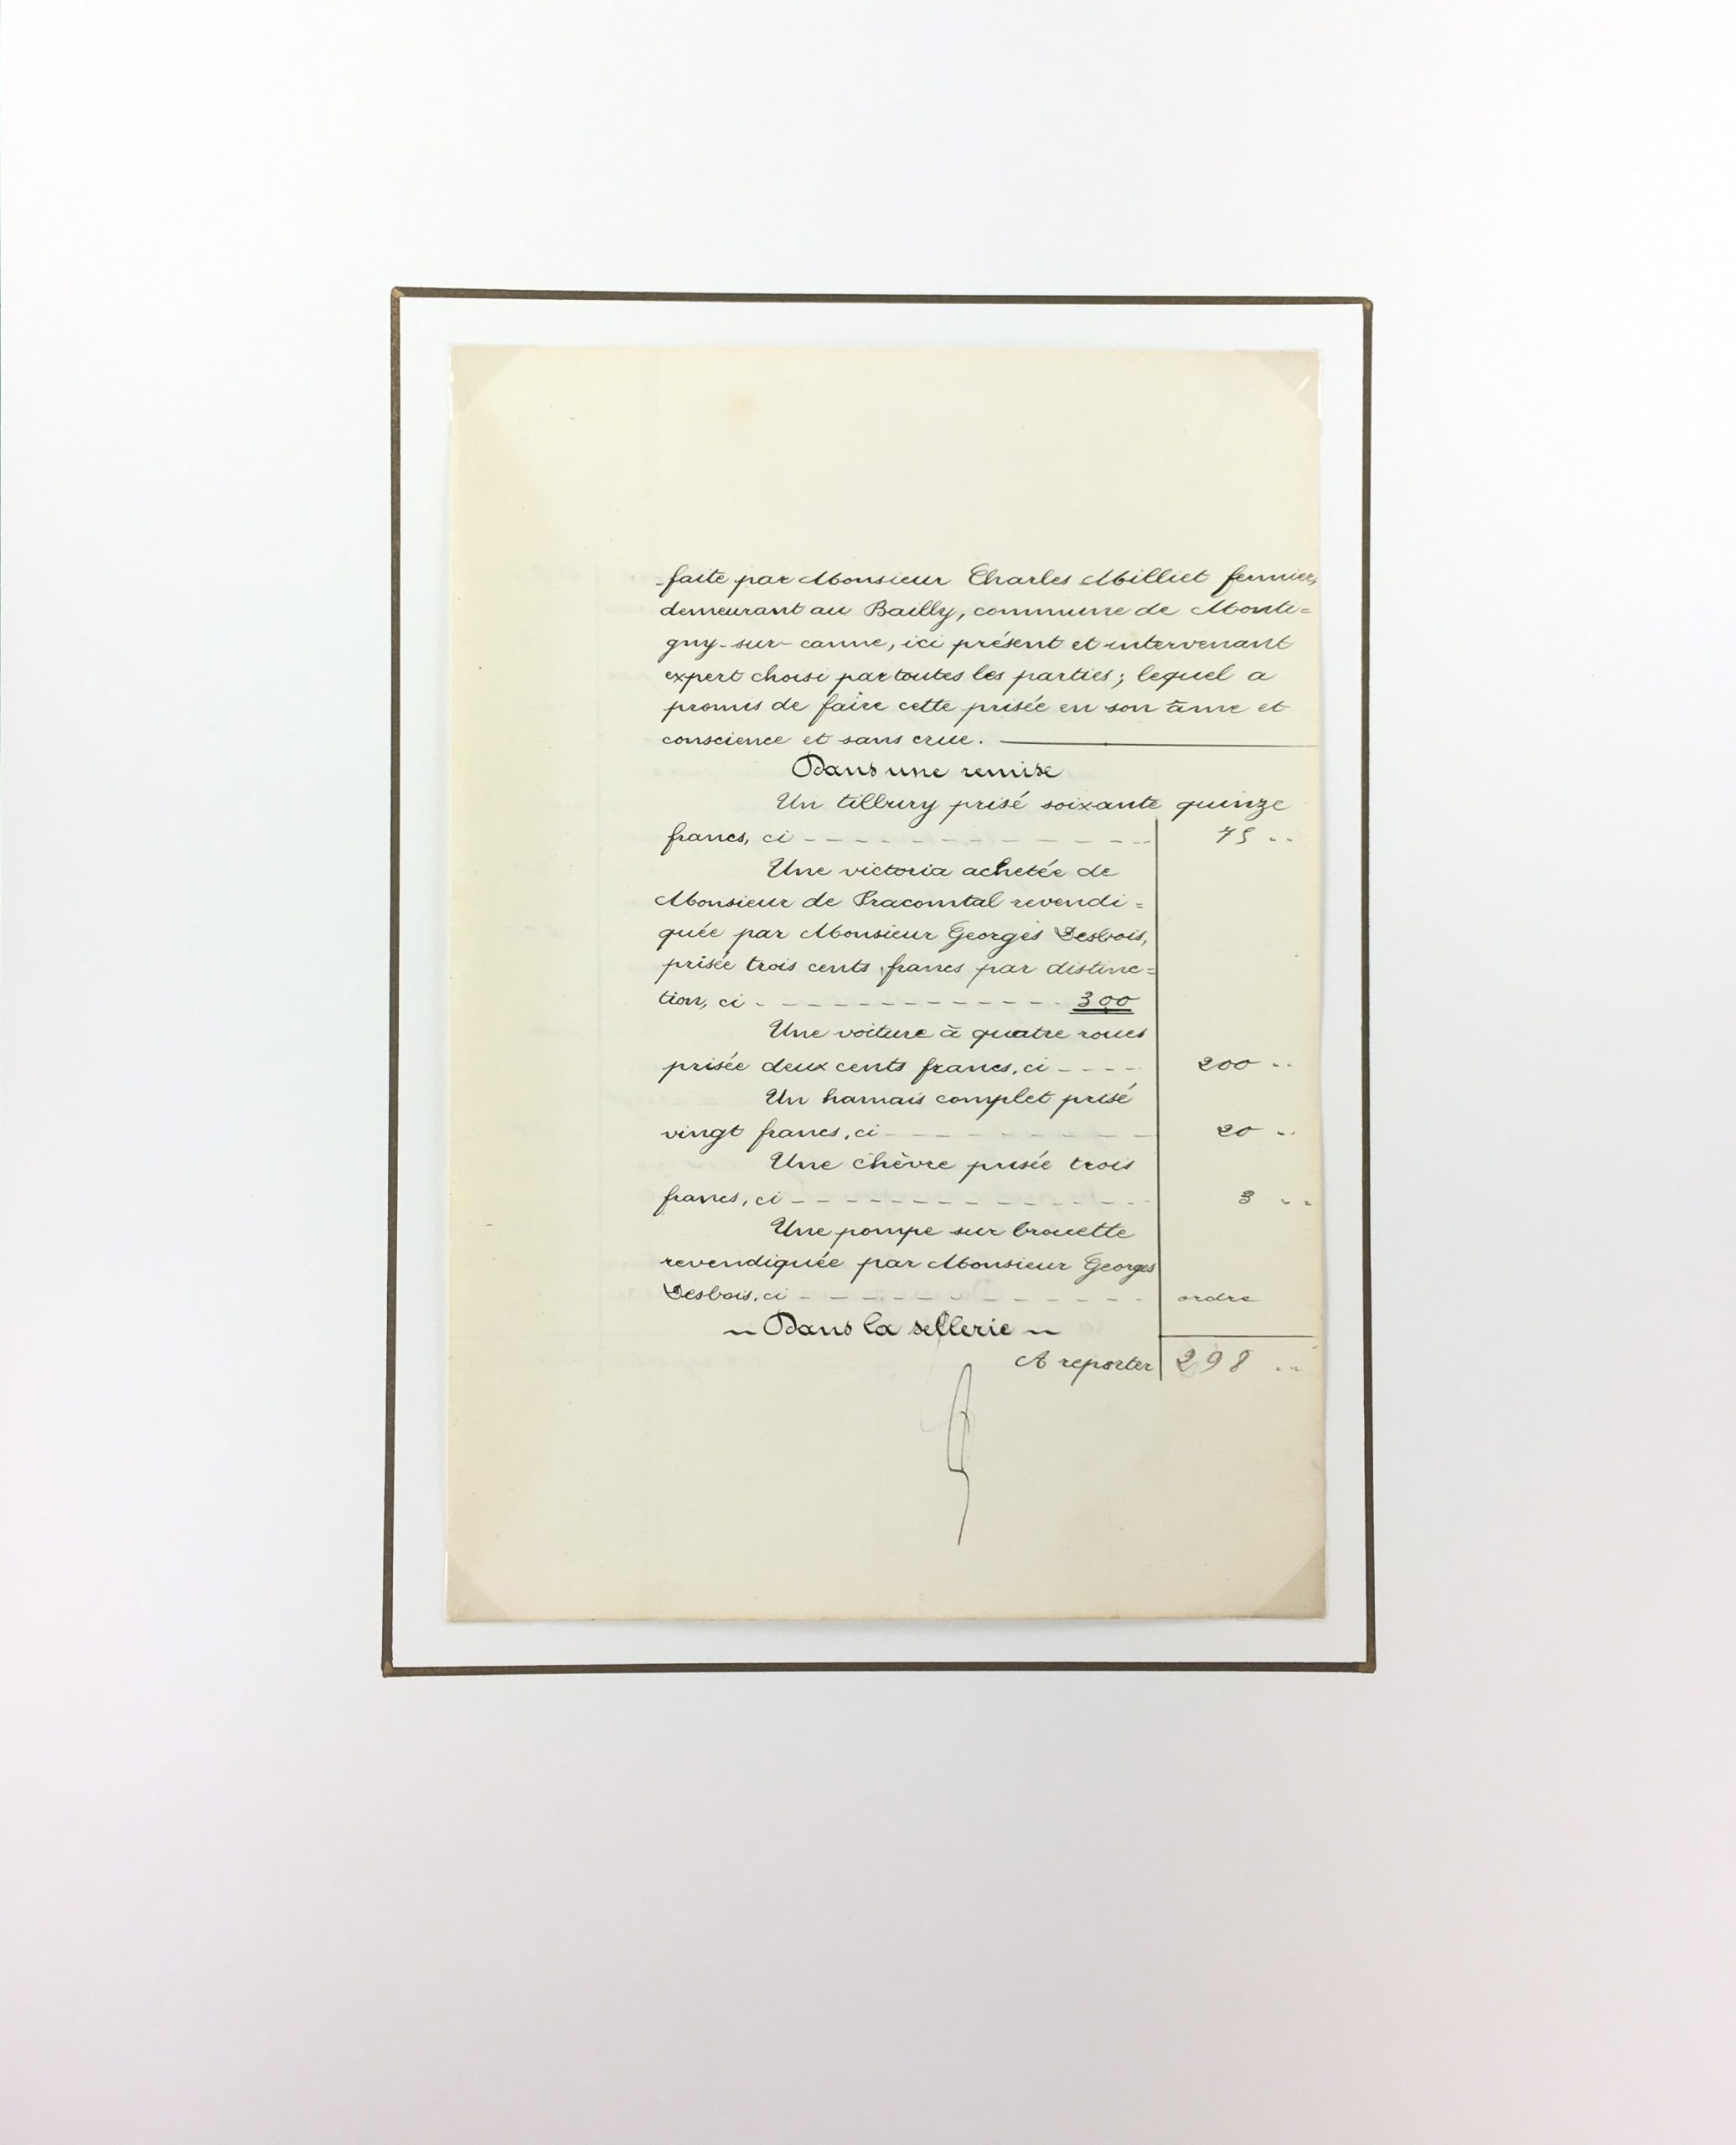 faite par Monsieur Charles Milliet fermier,
demeurant au Bailly, commune de Monti=
gny-sur-canne, ici présent et intervenant
expert choisi par toutes les parties; lequel a
promis de faire cette prisée en son âme et
conscience et sans crue.
Dans une remise
Un tilbury prisé soixante quinze
francs, ci 75 "
Une victoria achetée de
Monsieur de Pracomtal revendi=
quée par Monsieur Georges Desbois,
prisée trois cents francs par distinc=
tion, ci 300
Une voiture à quatre roues
prisée deux cents francs, ci 200 "
Un harnais complet prisé
vingt francs, ci 20 "
Une chèvre prisée trois
francs, ci 3 "
Une pompe sur brouette
revendiquée par Monsieur Georges
Desbois, ci ordre
~ Dans la sellerie ~
A reporter 298 "